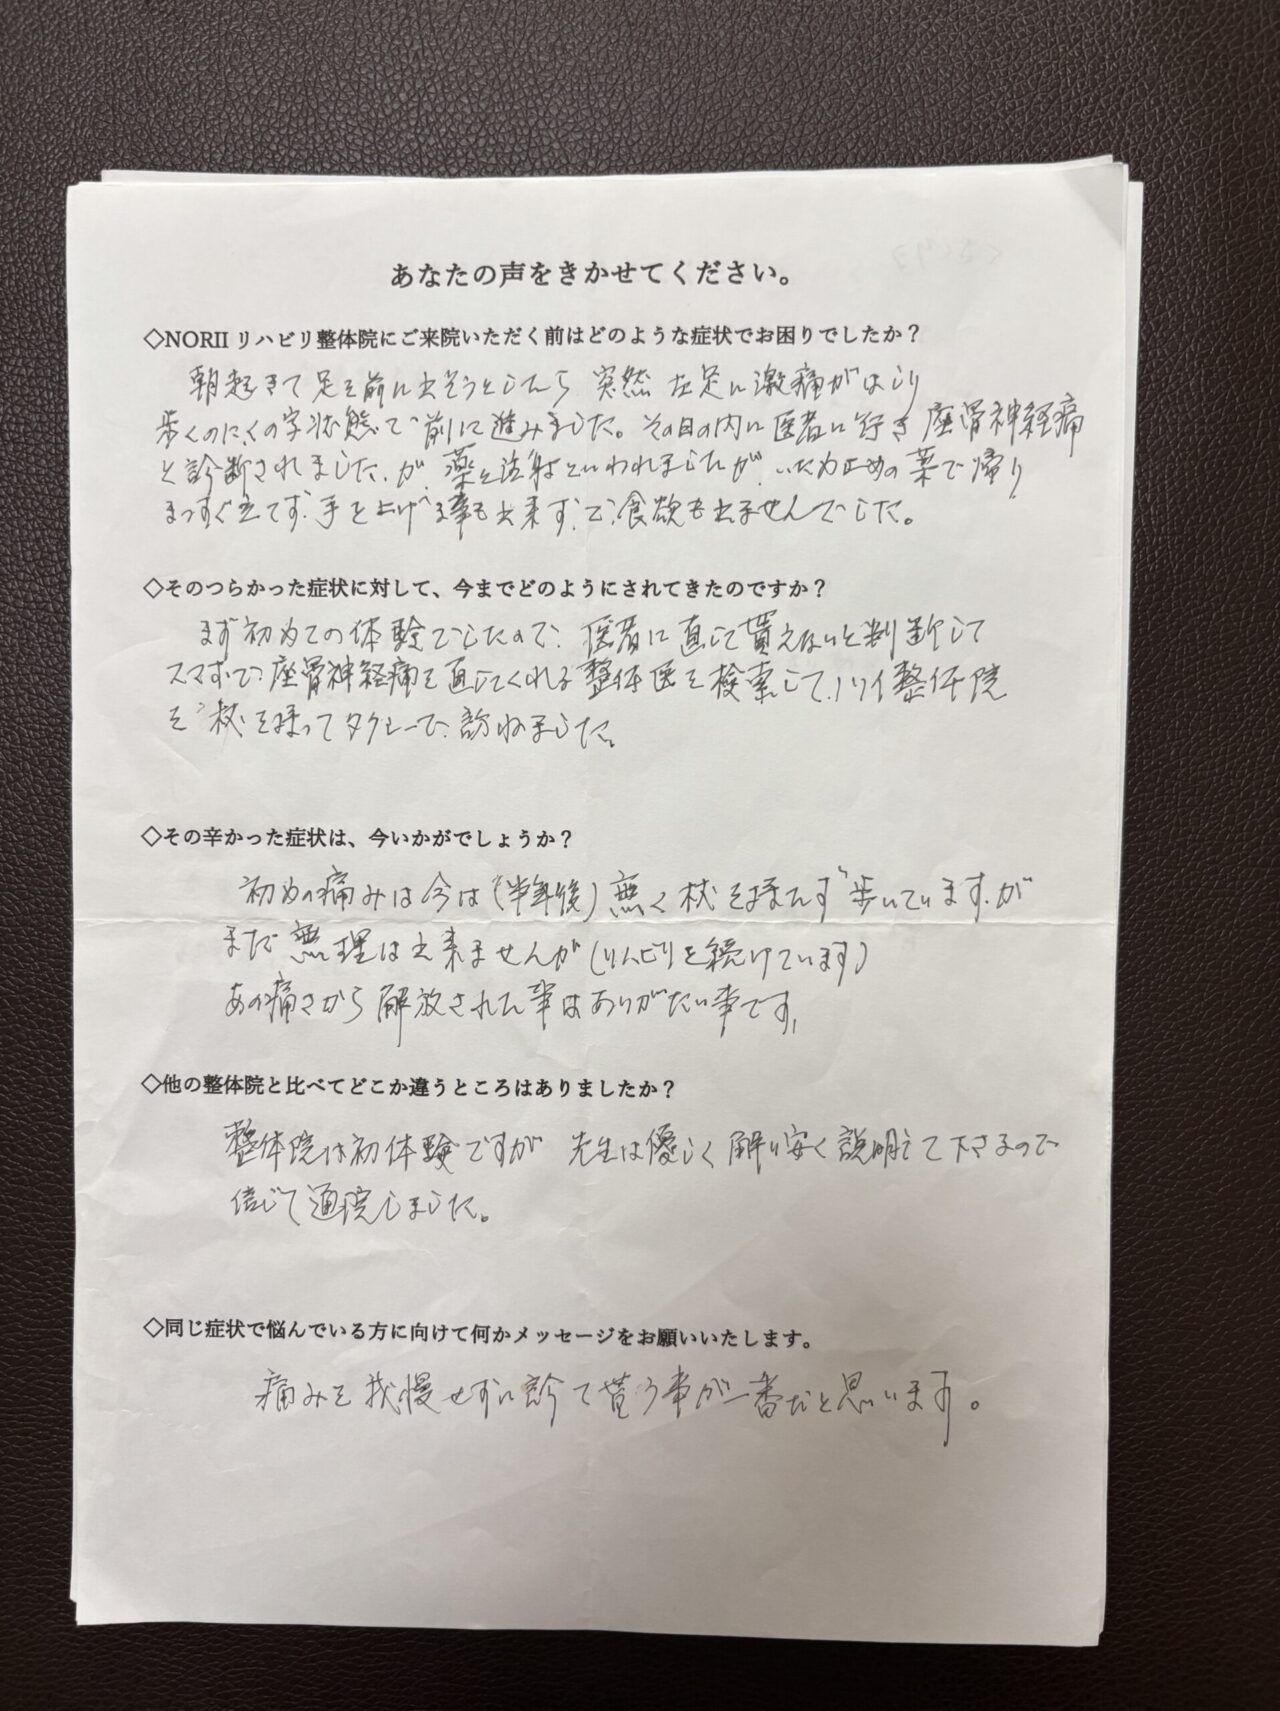 あなたの声をきかせてください。
◇NORII リハビリ整体院にご来院いただく前はどのような症状でお困りでしたか？
朝起きて足を前に出そうとしたら 突然 左足に激痛がはしり
歩くのにくの字状態で前に進みました。その日の内に医者に行き 座骨神経痛
と診断されました、が、薬と注射といわれましたが、いたみ止めの薬で帰り
まっすぐ立てず、手を上げる事も出来ず、で、食欲も出ませんでした。
◇そのつらかった症状に対して、今までどのようにされてきたのですか？
まず初めての体験でしたので、医者に直して貰えないと判断して
スマホで、座骨神経痛を直してくれる整体医を検索して、ノリイ整体院
を 杖を持ってタクシーで、訪ねました。
◇その辛かった症状は、今いかがでしょうか？
初めの痛みは今は（半年後）無く 杖を持たず 歩いています、が
まだ 無理は出来ませんが（リハビリを続けています）
あの痛さから 解放された事はありがたい事です、
◇他の整体院と比べてどこか違うところはありましたか？
整体院は初体験ですが 先生は優しく 解り安く説明して下さるので
信じて通院しました。
◇同じ症状で悩んでいる方に向けて何かメッセージをお願いいたします。
痛みを我慢せずに診て貰う事が一番だと思います。